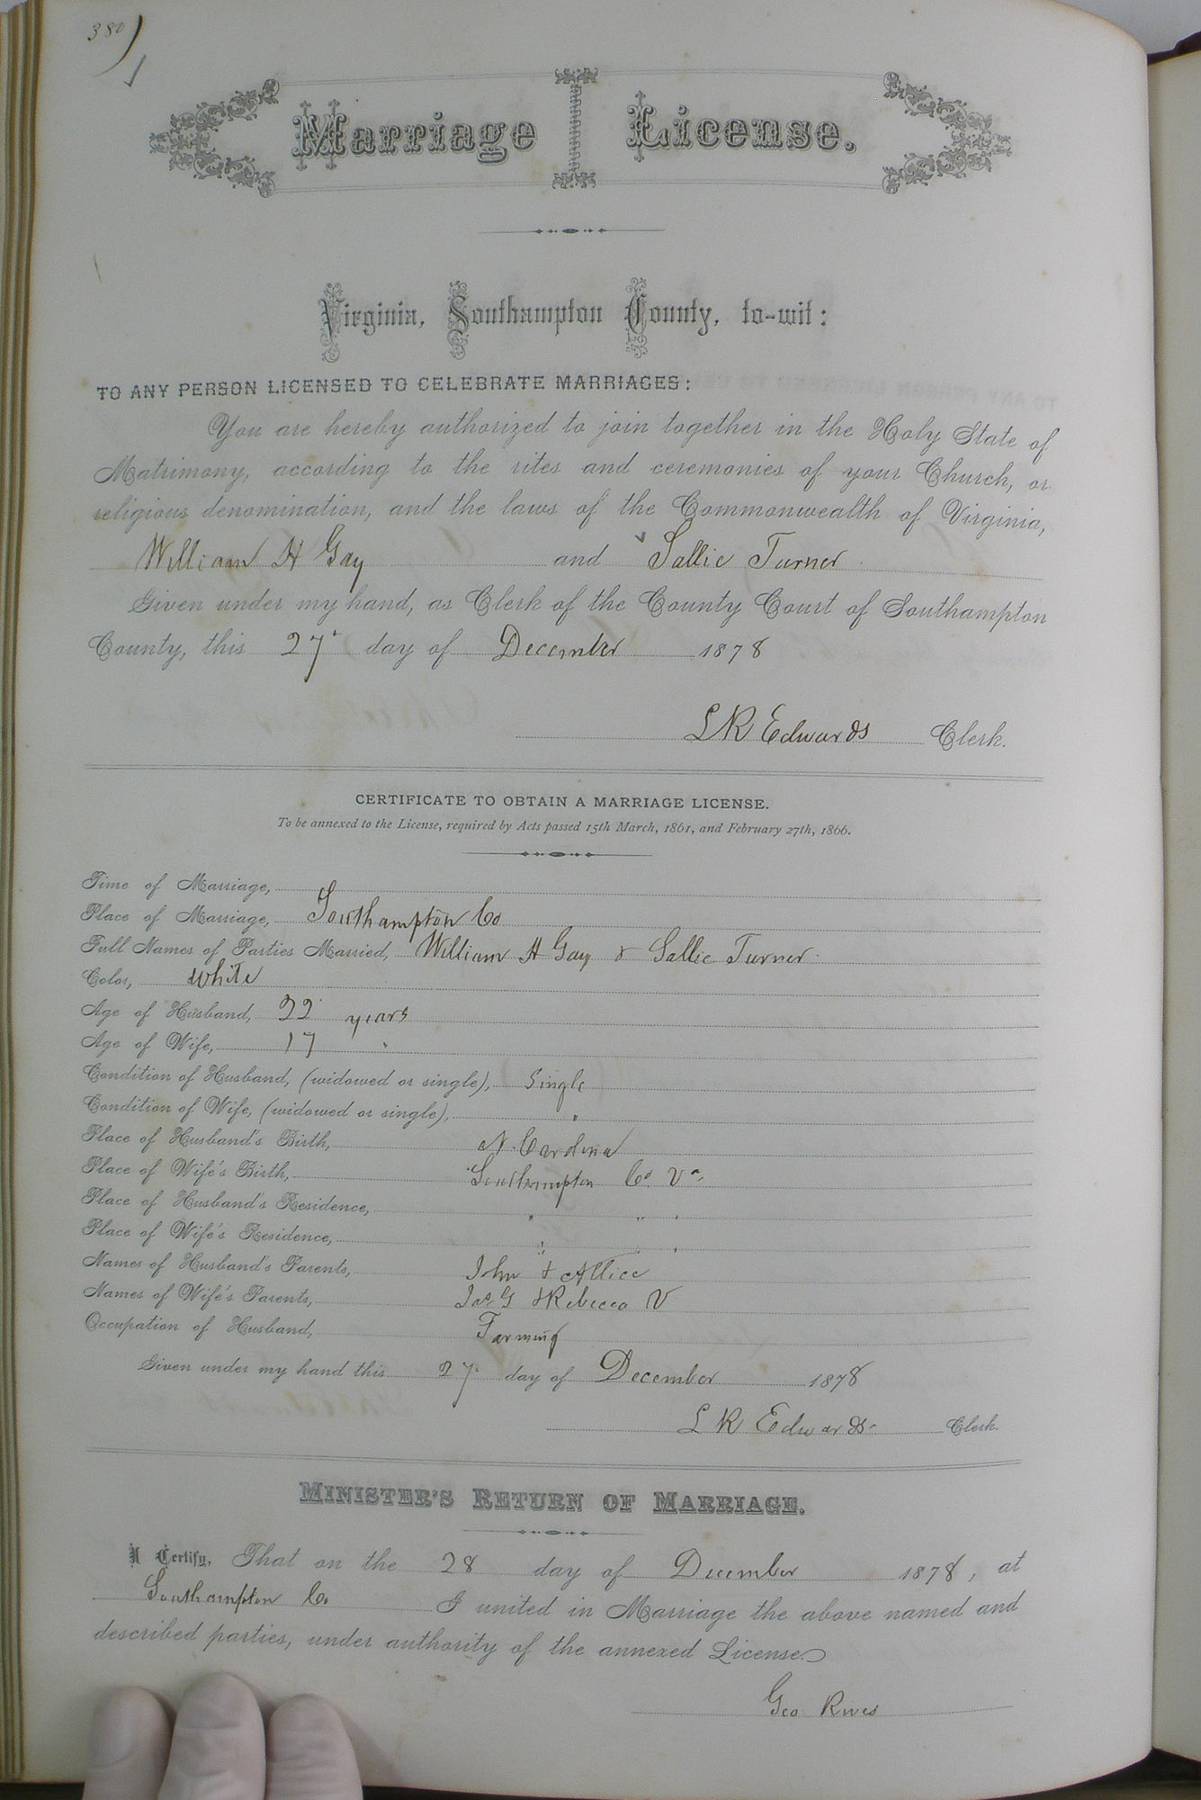 380
Marriage License.
Virginia, Southampton County, to-wit:
TO ANY PERSON LICENSED TO CELEBRATE MARRIAGES:
You are hereby authorized to join together in the Holy State of
Matrimony, according to the rites and ceremonies of your Church, or
religious denomination, and the laws of the Commonwealth of Virginia,
William H Gay and Sallie Turner
Given under my hand, as Clerk of the County Court of Southampton
County, this 27 day of December 1878
L R Edwards Clerk.
CERTIFICATE TO OBTAIN A MARRIAGE LICENSE.
To be annexed to the License, required by Acts passed 15th March, 1861, and February 27th, 1866.
Time of Marriage,
Place of Marriage, Southampton Co
Full Names of Parties Married, William H Gay & Sallie Turner
Color, White
Age of Husband, 22 years
Age of Wife, 17 "
Condition of Husband, (widowed or single), Single
Condition of Wife, (widowed or single), "
Place of Husband's Birth, N. Carolina
Place of Wife's Birth, Southampton Co Va
Place of Husband's Residence, " " "
Place of Wife's Residence, " " "
Names of Husband's Parents, John & Allice
Names of Wife's Parents, & Rebecca V
Occupation of Husband, Farming
Given under my hand this 27 day of December 1878
L R Edwards Clerk.
MINISTER'S RETURN OF MARRIAGE.
I Certify, That on the 28 day of December 1878, at
Southampton Co. I united in Marriage the above named and
described parties, under authority of the annexed License.
Geo Rives